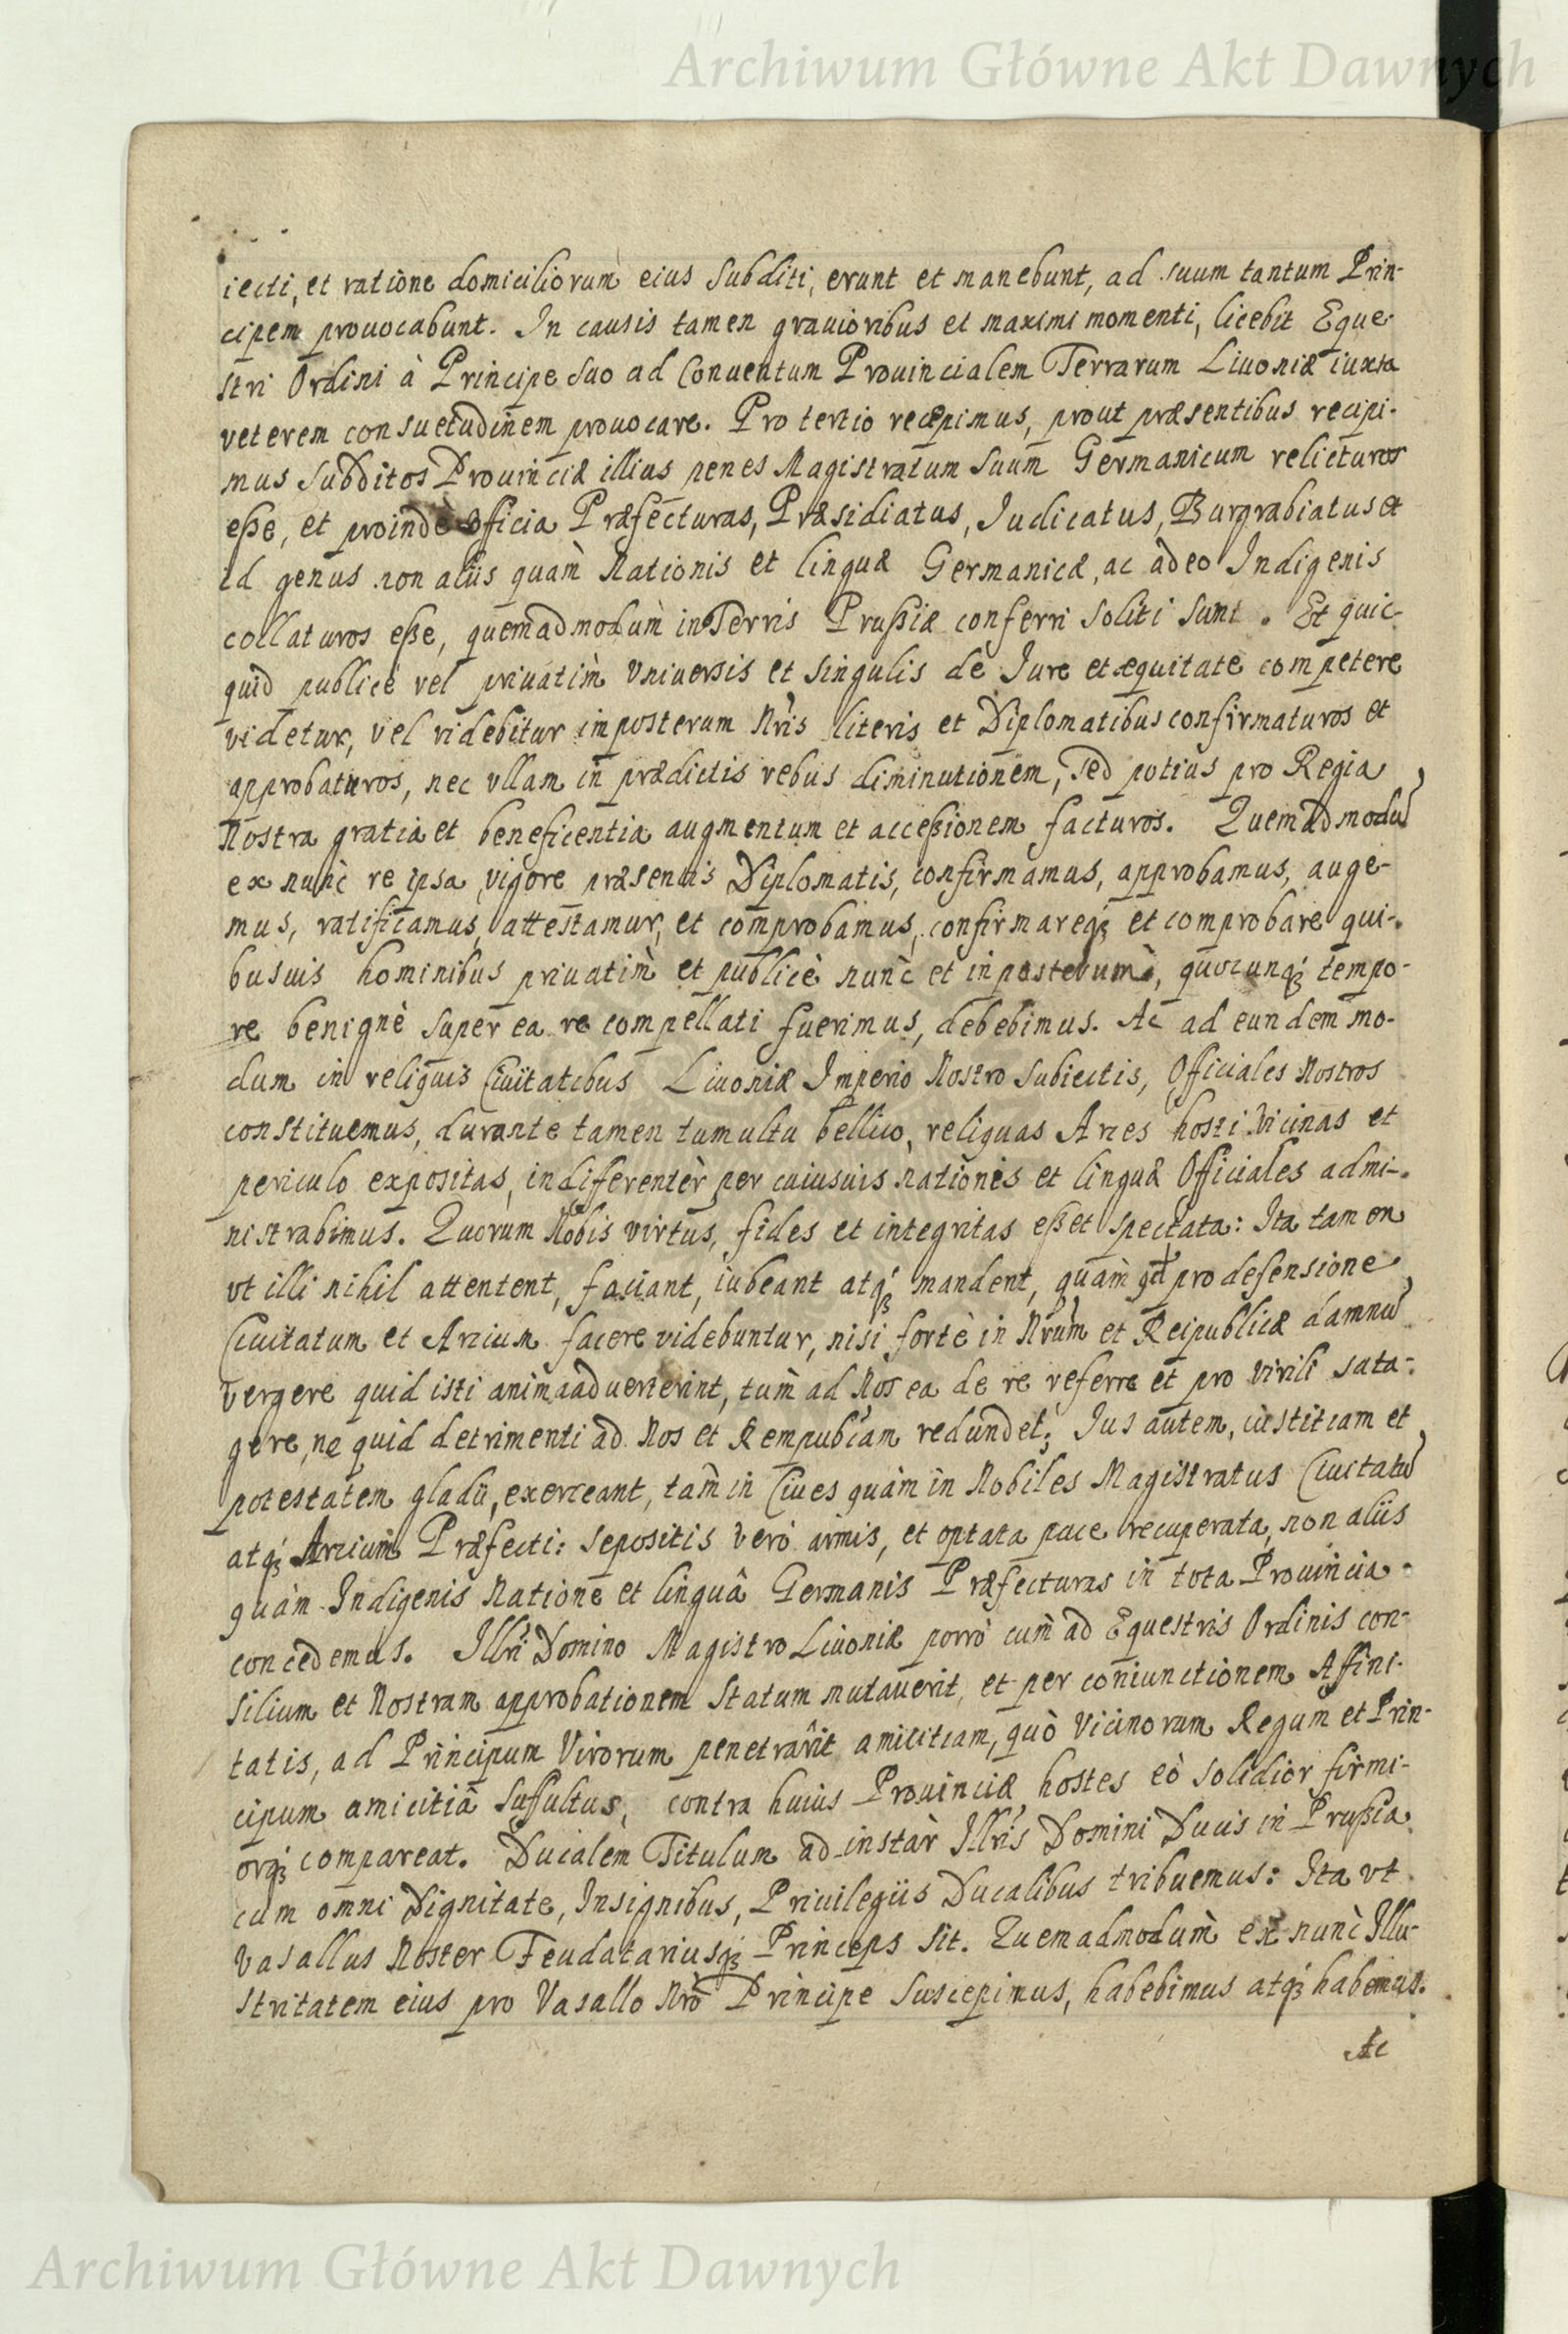 Archiwum Główne Akt Dawnych
iecti, et ratione domiciliorum eius Subditi, erunt et manebunt, ad suum tantum Prin-
cipem prouocabunt. In causis tamen grauioribus et maximi momenti, licebit Eque-
stri Ordini à Principe suo ad Conuentum Prouincialem Terrarum Liuoniæ iuxta
veterem consuetudinem prouocare. Pro tertio recepimus, prout præsentibus recipi-
mus Subditos Prouinciæ illius penes Magistratum Suum Germanicum relicturos
eße, et proindè Officia Præfecturas, Præsidiatus, Iudicatus, Burgrabiatus et
id genus non aliis quàm Nationis et linguæ Germanicæ, ac adeo Indigenis
collaturos eße, quemadmodum in Terris Prußiæ conferri soliti sunt. Et quic-
quid publicè vel priuatìm Vniuersis et singulis de Iure et æquitate competere
videtur, vel videbitur imposterum Nr̃is literis et Diplomatibus confirmaturos et
approbaturos, nec vllam in prædictis rebus diminutionem, Sed potius pro Regia
Nostra gratia et beneficentia augmentum et acceßionem facturos. Quemadmodũ
ex nunc re ipsa vigore præsentis Diplomatis, confirmamus, approbamus, auge-
mus, ratificamus, attestamur, et comprobamus, confirmareq́ꝫ et comprobare qui-
busuis hominibus priuatìm et publicè nunc et inposterum, quocunq́ꝫ tempo-
re benignè super ea re compellati fuerimus, debebimus. Ac ad eundem mo-
dum in reliquis Ciuitatibus Liuoniæ Imperio Nostro Subiectis, Officiales Nostros
constituemus, durante tamen tumultu bellico, reliquas Arces hosti Vicinas et
periculo expositas, indiferentèr per cuiusuis nationis et linguæ Officiales admi-
nistrabimus. Quorum Nobis virtus, fides et integritas eßet spectata: Ita tamen
vt illi nihil attentent, faciant, iubeant atq́ꝫ mandent, quàm qđ pro defensione
Ciuitatum et Arcium facere videbuntur, nisi fortè in Nr̃um et Reipublicæ damnũ
vergere quid isti animaaduerterint, tum ad Nos ea de re referre et pro virili sata-
gere, ne quid detrimenti ad Nos et Rempubl̃cam redundet; Ius autem, iustitiam et
potestatem gladii, exerceant, tàm in Ciues quàm in Nobiles Magistratus Ciuitatũ
atq́ꝫ Arcium Præfecti: sepositis verò armis, et optata pace recuperata, non aliis
quàm Indigenis Natione et linguâ Germanis Præfecturas in tota Prouincia
concedemus. Illr̃i Domino Magistro Liuoniæ porrò cum ad Equestris Ordinis con-
silium et Nostram approbationem Statum mutauerit, et per coniunctionem Affini-
tatis, ad Principum Virorum penetrarît amicitiam, quò Vicinorum Regum et Prin-
cipum amicitiâ suffultus, contra huius Prouinciæ hostes eò solidior firmi-
orq́ꝫ compareat. Ducalem Titulum ad instàr Illr̃is Domini Ducis in Prußia
cum omni Dignitate, Insignibus, Priuilegiis Ducalibus tribuemus: Ita vt
Vasallus Noster Feudatariusq́ꝫ Princeps sit. Quemadmodum ex nunc Illu-
stritatem eius pro Vasallo Nr̃o Principe suscepimus, habebimus atq́ꝫ habemus.
Ac
Archiwum Główne Akt Dawnych